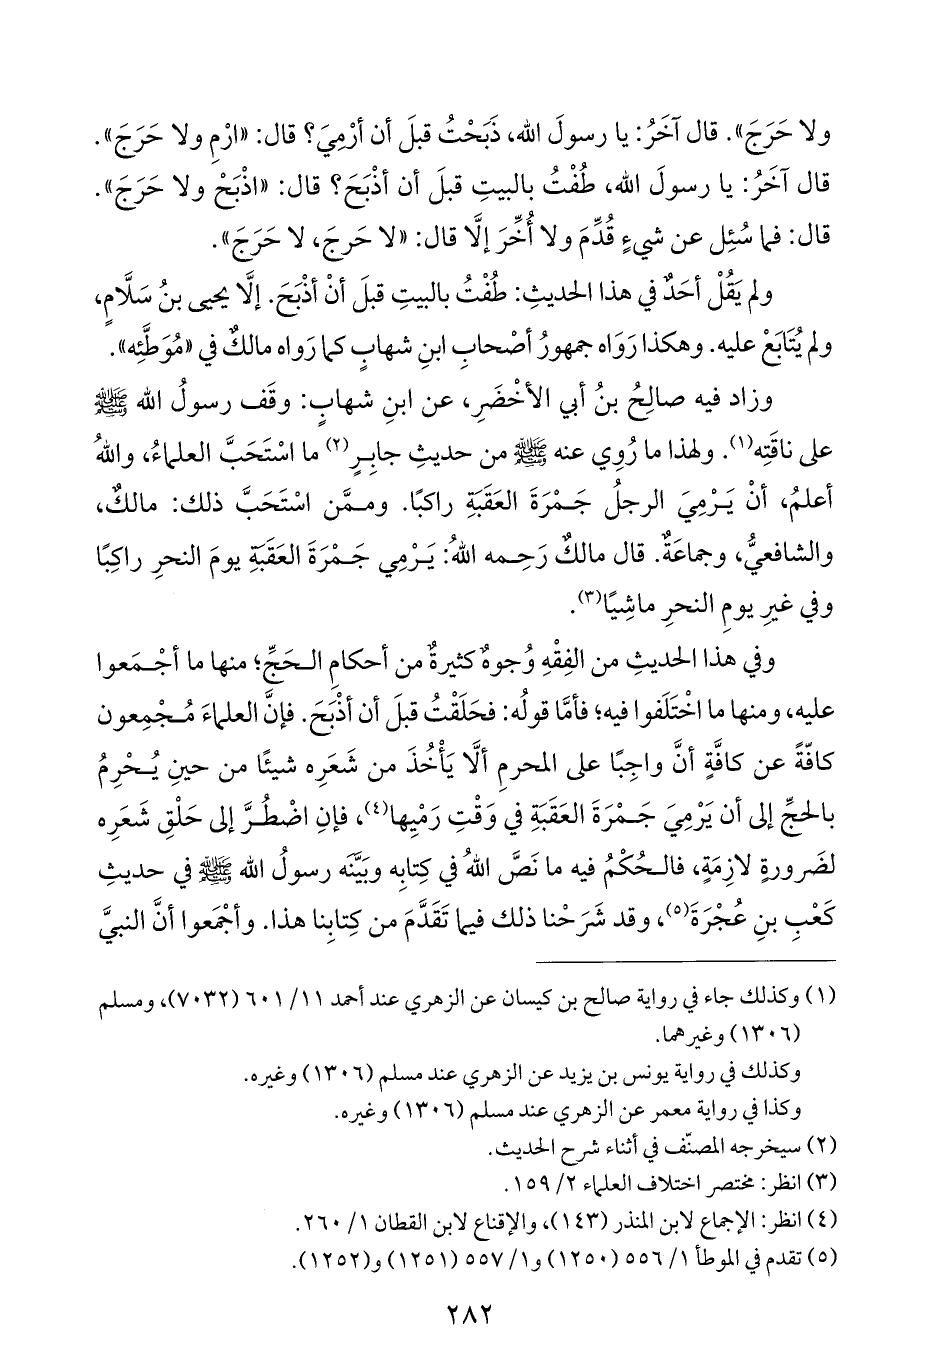 ولا حَرَجَ». قال آخَرُ: يا رسولَ الله، ذَبَحْتُ قبلَ أن أرْمِيَ؟ قال: «ارْمِ ولا حَرَجَ».
قال آخَرُ: يا رسولَ الله، طُفْتُ بالبيتِ قبلَ أن أذْبَحَ؟ قال: «اذْبَحْ ولا حَرَجَ».
قال: فما سُئِل عن شيءٍ قُدِّمَ ولا أُخِّرَ إلَّا قال: «لا حَرجَ، لا حَرَجَ».
ولم يَقُلْ أحَدٌ في هذا الحديثِ: طُفْتُ بالبيتِ قبلَ أنْ أذْبَحَ. إلَّا يحيى بنُ سَلَّامٍ،
ولم يُتَابَعْ عليه. وهكذا رَوَاه جمهورُ أصْحابِ ابنِ شهابٍ كما رَواه مالكٌ في «مُوَطَّئِه».
وزاد فيه صالِحُ بنُ أبي الأخْضَرِ، عن ابنِ شهابٍ: وقَف رسولُ الله ﷺ
على ناقَتِه(١). ولهذا ما رُوِي عنه ﷺ من حديثِ جابِرٍ(٢) ما اسْتَحَبَّ العلماءُ، واللهُ
أعلمُ، أنْ يَـرْمِيَ الرجلُ جَـمْرَةَ العَقَبَةِ راكبًا. ومـمَّن اسْتَحَبَّ ذلك: مالكٌ،
والشافعيُّ، وجماعَةٌ. قال مالكٌ رَحِـمه اللهُ: يَـرْمِي جَـمْرَةَ العَقَبَةِ يومَ النحرِ راكِبًا
وفي غيرِ يومِ النحرِ ماشِيًا(٣).
وفي هذا الحديثِ من الفِقْهِ وُجوهٌ كثيرةٌ من أحكامِ الـحَجِّ؛ منها ما أجْـمَعوا
عليه، ومنها ما اخْتَلَفوا فيه؛ فأمَّا قولُه: فحَلَقْتُ قبلَ أن أذْبَحَ. فإنَّ العلماءَ مُـجْمِعون
كافّةً عن كافَّةٍ أنَّ واجِبًا على المحرمِ ألَّا يَأْخُذَ من شَعَرِه شيئًا من حينِ يُـحْرِمُ
بالحجِّ إلى أن يَرْمِيَ جَـمْرَةَ العَقَبَةِ في وَقْتِ رَمْيِها(٤)، فإنِ اضْطُـرَّ إلى حَلْقِ شَعَرِه
لضَرورةٍ لازِمَةٍ، فالـحُكْمُ فيه ما نَصَّ اللهُ في كِتابِه وبَيَّنَه رسولُ الله ﷺ في حديثِ
كَعْبِ بنِ عُجْرَةَ(٥)، وقد شَرَحْنا ذلك فيما تَقَدَّمَ من كِتابِنا هذا. وأجْمَعوا أنَّ النبيَّ
(١) وكذلك جاء في رواية صالح بن كيسان عن الزهري عند أحمد ١١/ ٦٠١ (٧٠٣٢)، ومسلم
(١٣٠٦) وغيرهما.
وكذلك في رواية يونس بن يزيد عن الزهري عند مسلم (١٣٠٦) وغيره.
وكذا في رواية معمر عن الزهري عند مسلم (١٣٠٦) وغيره.
(٢) سيخرجه المصنّف في أثناء شرح الحديث.
(٣) انظر: مختصر اختلاف العلماء ٢/ ١٥٩.
(٤) انظر: الإجماع لابن المنذر (١٤٣)، والإقناع لابن القطان ١/ ٢٦٠.
(٥) تقدم في الموطأ ١/ ٥٥٦ (١٢٥٠) و١/ ٥٥٧ (١٢٥١) و(١٢٥٢).
٢٨٢